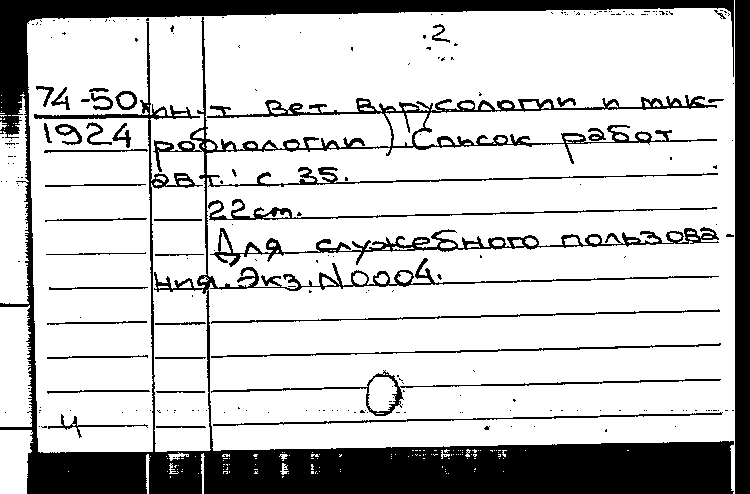 .2.
74-50к ин-т вет. вирусологии и мик-
1924 робиологии). Список работ
авт.: с. 35.
22 cm.
Для служебного пользова-
ния. Экз. N 0004.
ч